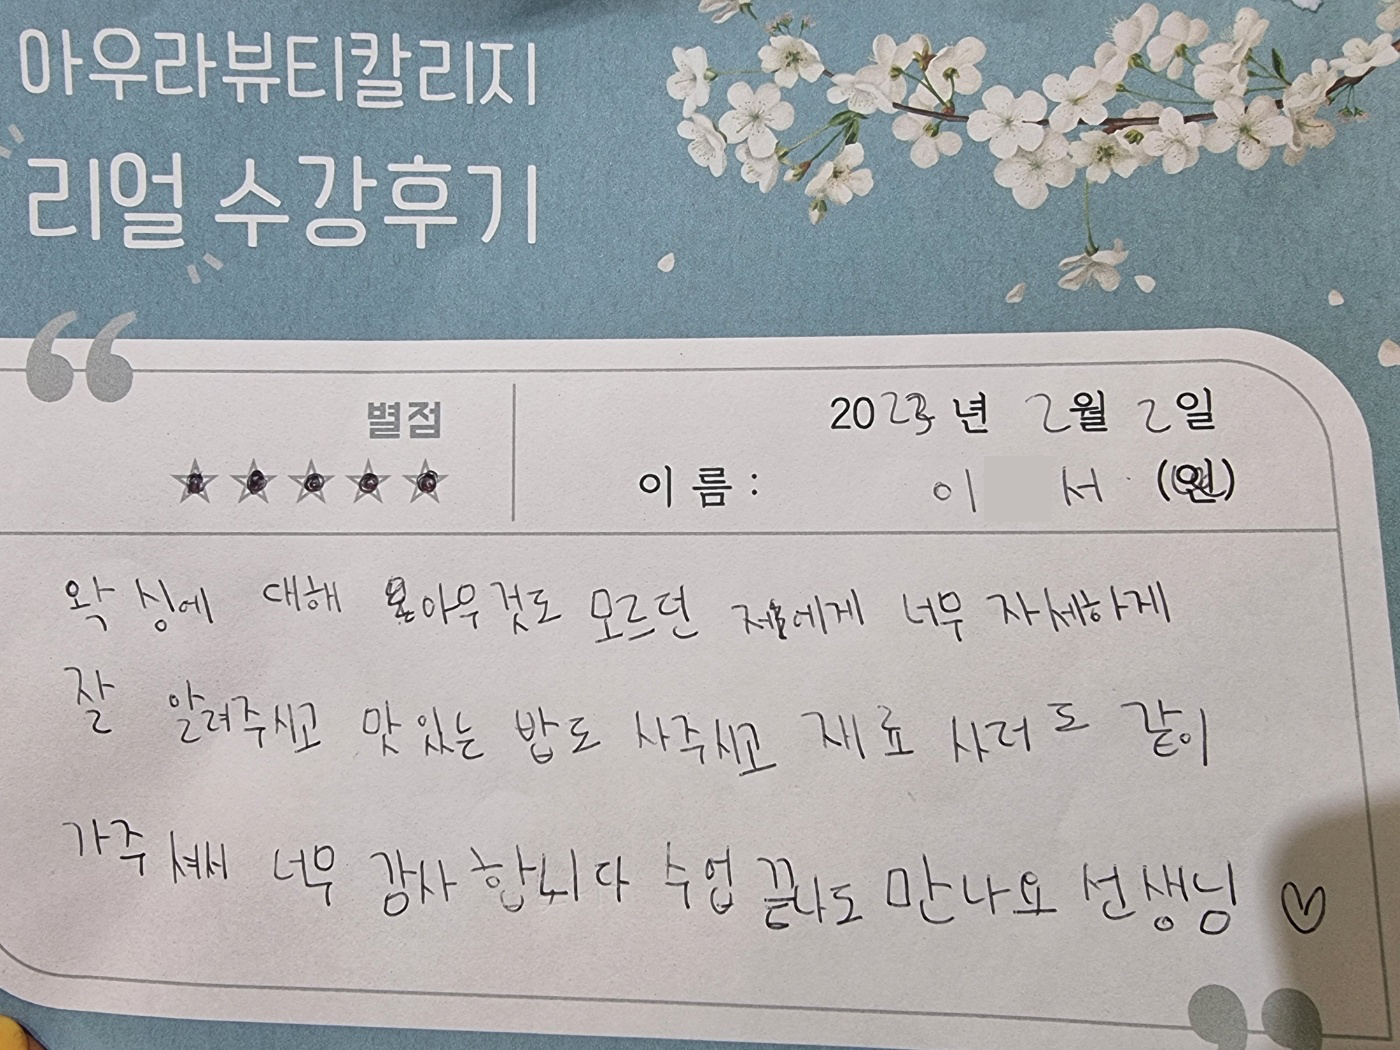 아우라뷰티칼리지
리얼 수강후기
별점
2023년 2월 2일
이름 : 이 서 (인)
왁싱에 대해 아우것도 모르던 저에게 너무 자세하게
잘 알려주시고 맛있는 밥도 사주시고 재료 사러도 같이
가주셔서 너무 감사합니다 수업 끝나도 만나요 선생님 ♡